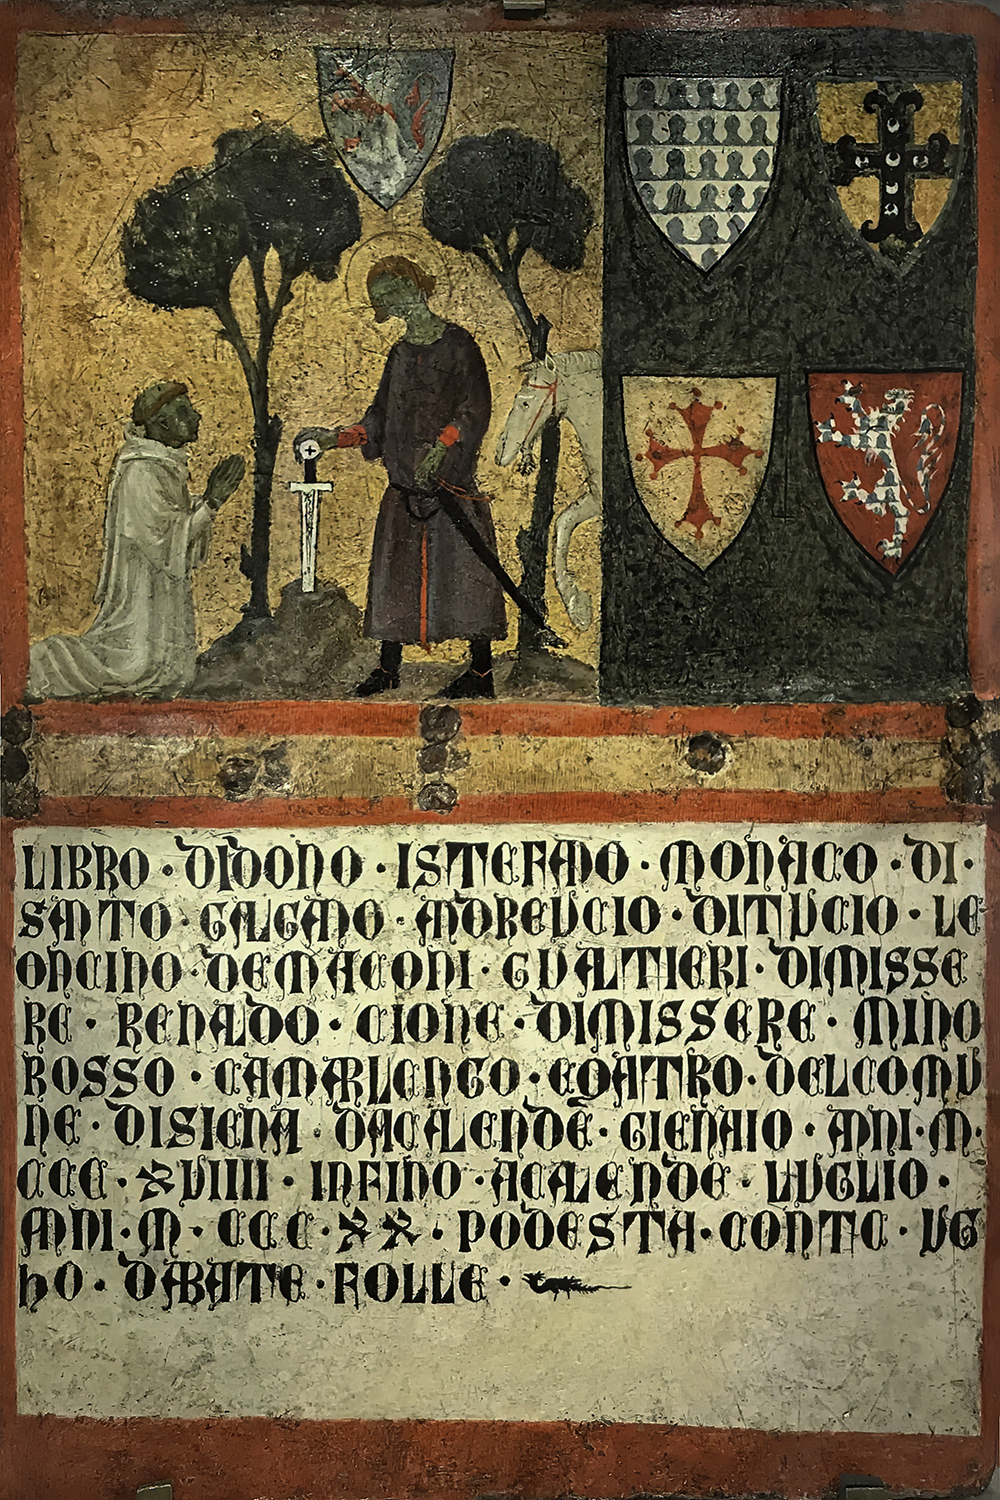 LIBRO · DIDONO · ISTEFANO · MONACO · DI ·
SANTO · GALGANO · MDREUCIO · DITUCIO · LE
ONCINO · DEMACONI · GUALTIERI · DIMISSE
RE · RENALDO · CIONE · DIMISSERE · MINO
ROSSO · CAMARLENGO · EQATRO · DELCOMU
NE · DISIENA · DACALENDE · GIENAIO · ANI · M ·
CCC · XVIIII · INFINO · ACALENDE · LUGLIO ·
ANI · M · CCC · XX · PODESTA · CONTE · UG
hO · DABATE · FOLLE ·